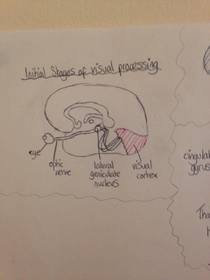 Initial Stages of visual processing
eye
optic
nerve
lateral
geniculate
nucleus
visual
cortex
cingulat
gyrus
Tha